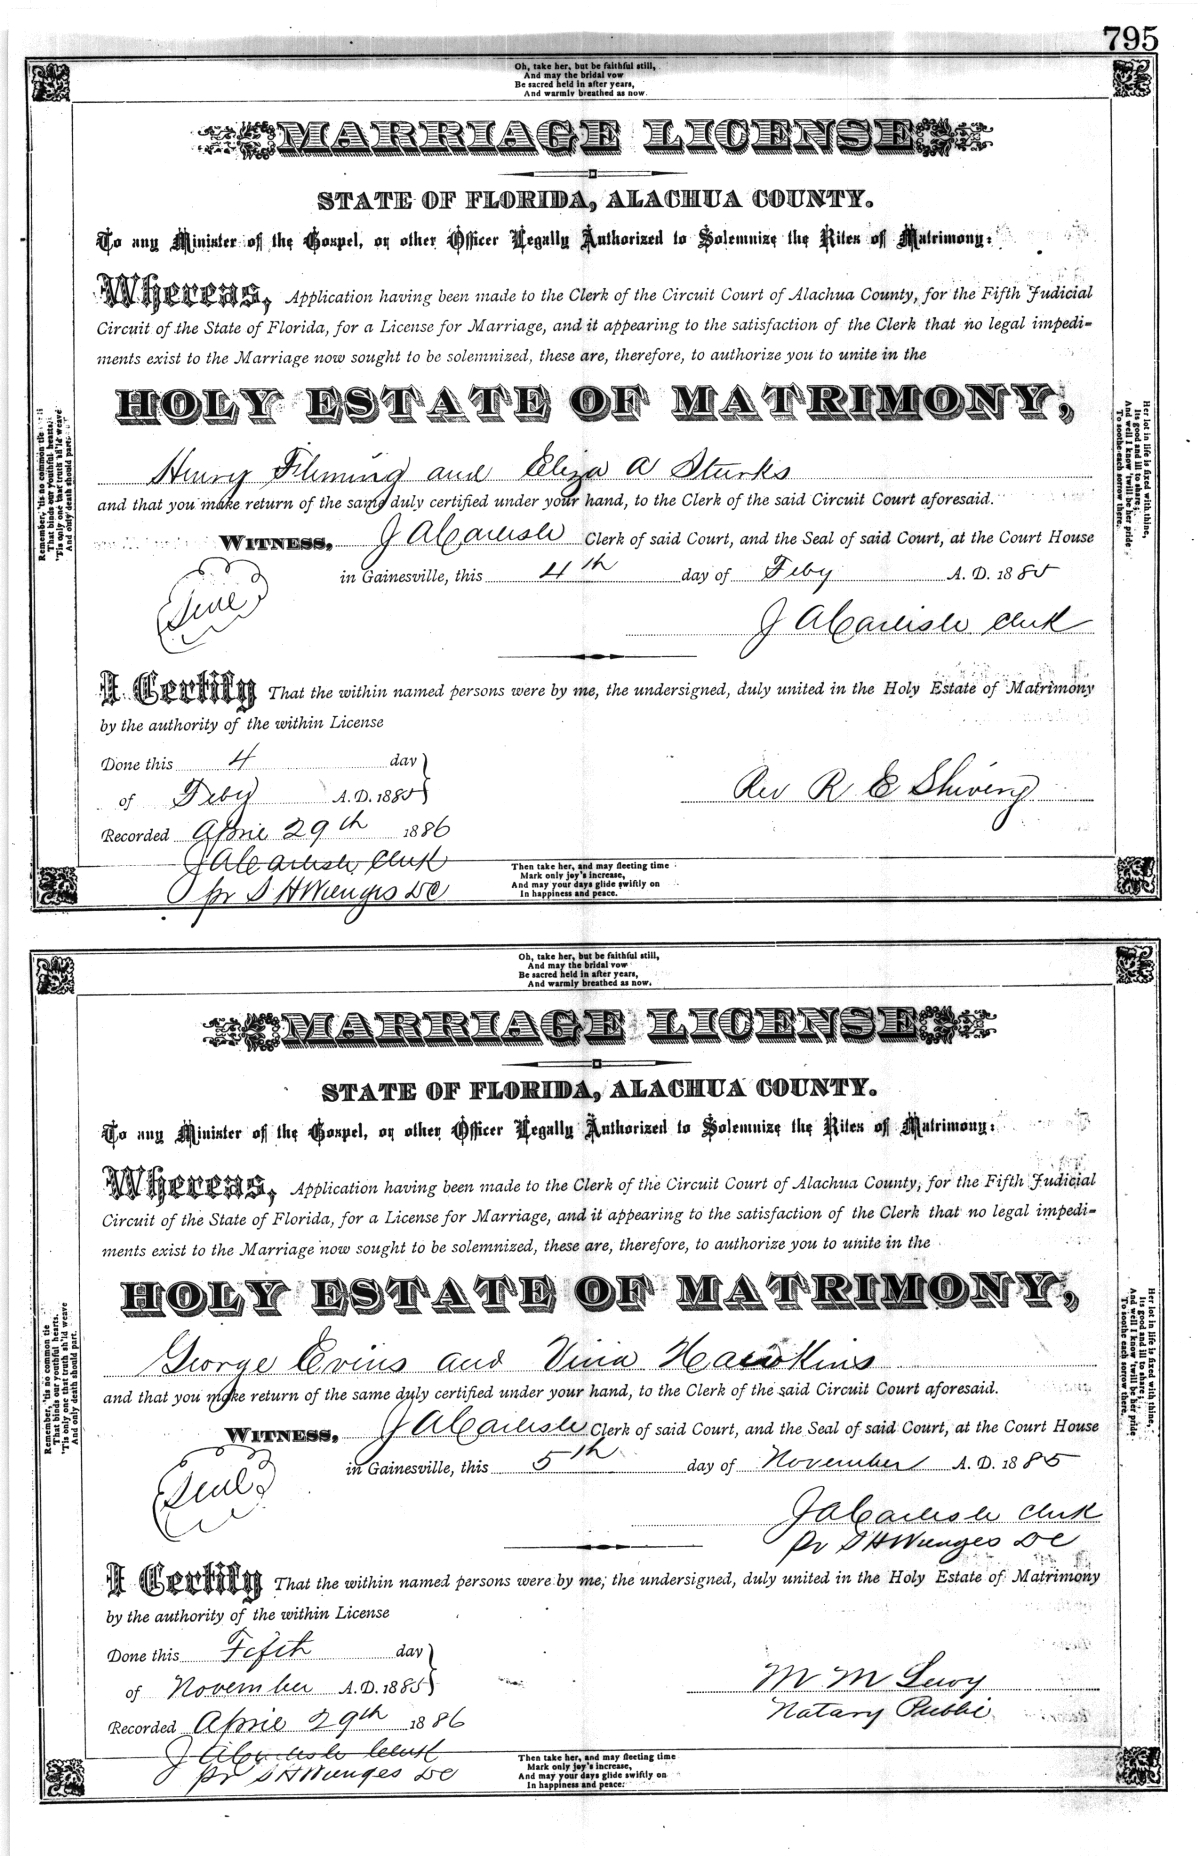 795
Oh, take her, but be faithful still,
And may the bridal vow
Be sacred held in after years,
And warmly breathed as now.
MARRIAGE LICENSE
STATE OF FLORIDA, ALACHUA COUNTY.
To any Minister of the Gospel, or other Officer Legally Authorized to Solemnize the Rites of Matrimony:
Whereas, Application having been made to the Clerk of the Circuit Court of Alachua County, for the Fifth Judicial
Circuit of the State of Florida, for a License for Marriage, and it appearing to the satisfaction of the Clerk that no legal impedi-
ments exist to the Marriage now sought to be solemnized, these are, therefore, to authorize you to unite in the
HOLY ESTATE OF MATRIMONY,
Henry Fleming and Eliza A Sturks
and that you make return of the same duly certified under your hand, to the Clerk of the said Circuit Court aforesaid.
WITNESS, J A Carlisle Clerk of said Court, and the Seal of said Court, at the Court House
in Gainesville, this 4th day of Feby A. D. 1885
Seal
J A Carlisle Clerk
I Certify That the within named persons were by me, the undersigned, duly united in the Holy Estate of Matrimony
by the authority of the within License
Done this 4 day
of Feby A. D. 1885
Rev R E Shivery
Recorded April 29th 1886
J A Carlisle Clerk
pr S H Wienges DC
Remember, 'tis no common tie
That binds our youthful hearts;
'Tis only one that truth sh'ld weave
And only death should part.
Her lot in life is fixed with thine,
Its good and ill to share;
And well I know 'twill be her pride
To soothe each sorrow there.
Then take her, and may fleeting time
Mark only joy's increase,
And may your days glide swiftly on
In happiness and peace.
Oh, take her, but be faithful still,
And may the bridal vow
Be sacred held in after years,
And warmly breathed as now.
MARRIAGE LICENSE
STATE OF FLORIDA, ALACHUA COUNTY.
To any Minister of the Gospel, or other Officer Legally Authorized to Solemnize the Rites of Matrimony:
Whereas, Application having been made to the Clerk of the Circuit Court of Alachua County, for the Fifth Judicial
Circuit of the State of Florida, for a License for Marriage, and it appearing to the satisfaction of the Clerk that no legal impedi-
ments exist to the Marriage now sought to be solemnized, these are, therefore, to authorize you to unite in the
HOLY ESTATE OF MATRIMONY,
George Evins and Vina Hawkins
and that you make return of the same duly certified under your hand, to the Clerk of the said Circuit Court aforesaid.
WITNESS, J A Carlisle Clerk of said Court, and the Seal of said Court, at the Court House
in Gainesville, this 5th day of November A. D. 1885
Seal
J A Carlisle Clerk
pr S H Wienges DC
I Certify That the within named persons were by me, the undersigned, duly united in the Holy Estate of Matrimony
by the authority of the within License
Done this Fifth day
of November A. D. 1885
M M Levy
Notary Public
Recorded April 29th 1886
J A Carlisle Clerk
pr S H Wienges DC
Remember, 'tis no common tie
That binds our youthful hearts.
'Tis only one that truth sh'ld weave
And only death should part.
Her lot in life is fixed with thine,
Its good and ill to share;
And well I know 'twill be her pride
To soothe each sorrow there.
Then take her, and may fleeting time
Mark only joy's increase,
And may your days glide swiftly on
In happiness and peace.